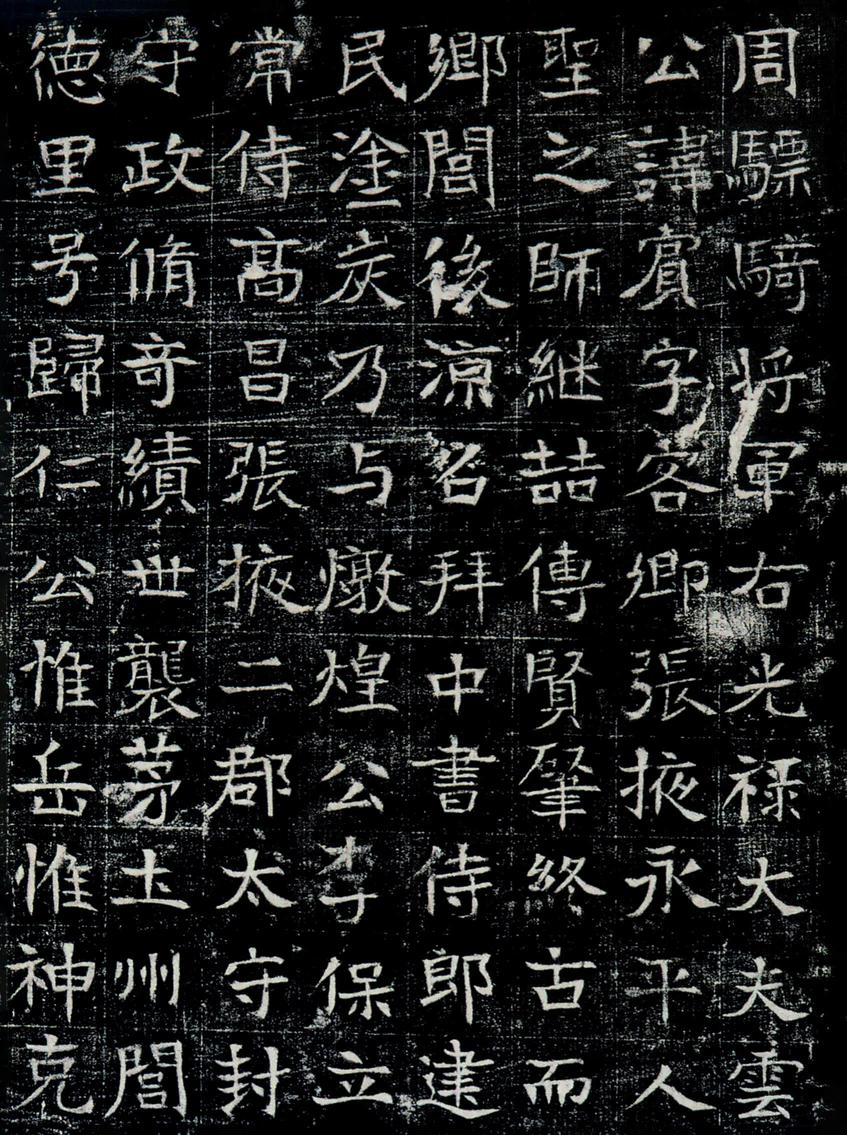 周驃騎將軍右光祿大夫雲
公諱賓字客卿張掖永平人
聖之師継喆傳賢肇終古而
鄉閭後涼召拜中書侍郎建
民塗炭乃与燉煌公李保立
常侍高昌張掖二郡太守封
守政脩奇績世襲茅土州閭
德里号歸仁公惟岳惟神克